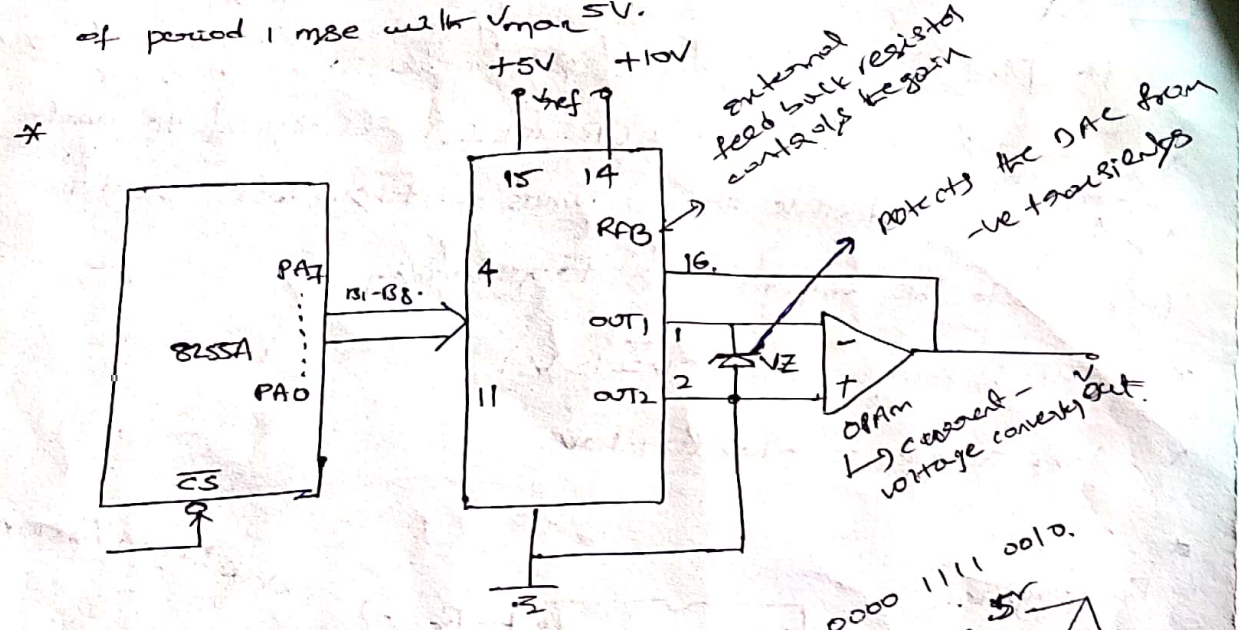 of period 1 mse with Vmax 5V.
+5V +10V
Vref
*
15 14
external
feed back resistor
controls te gain
RFB
protects the DAC from
-ve transients
PA7
4
16.
B1-B8.
OUT1
1
8255A
VZ
PA0
11
OUT2
2
Vout.
OPAM
↳ current -
voltage converty
CS
0000 1111 0010.
5V